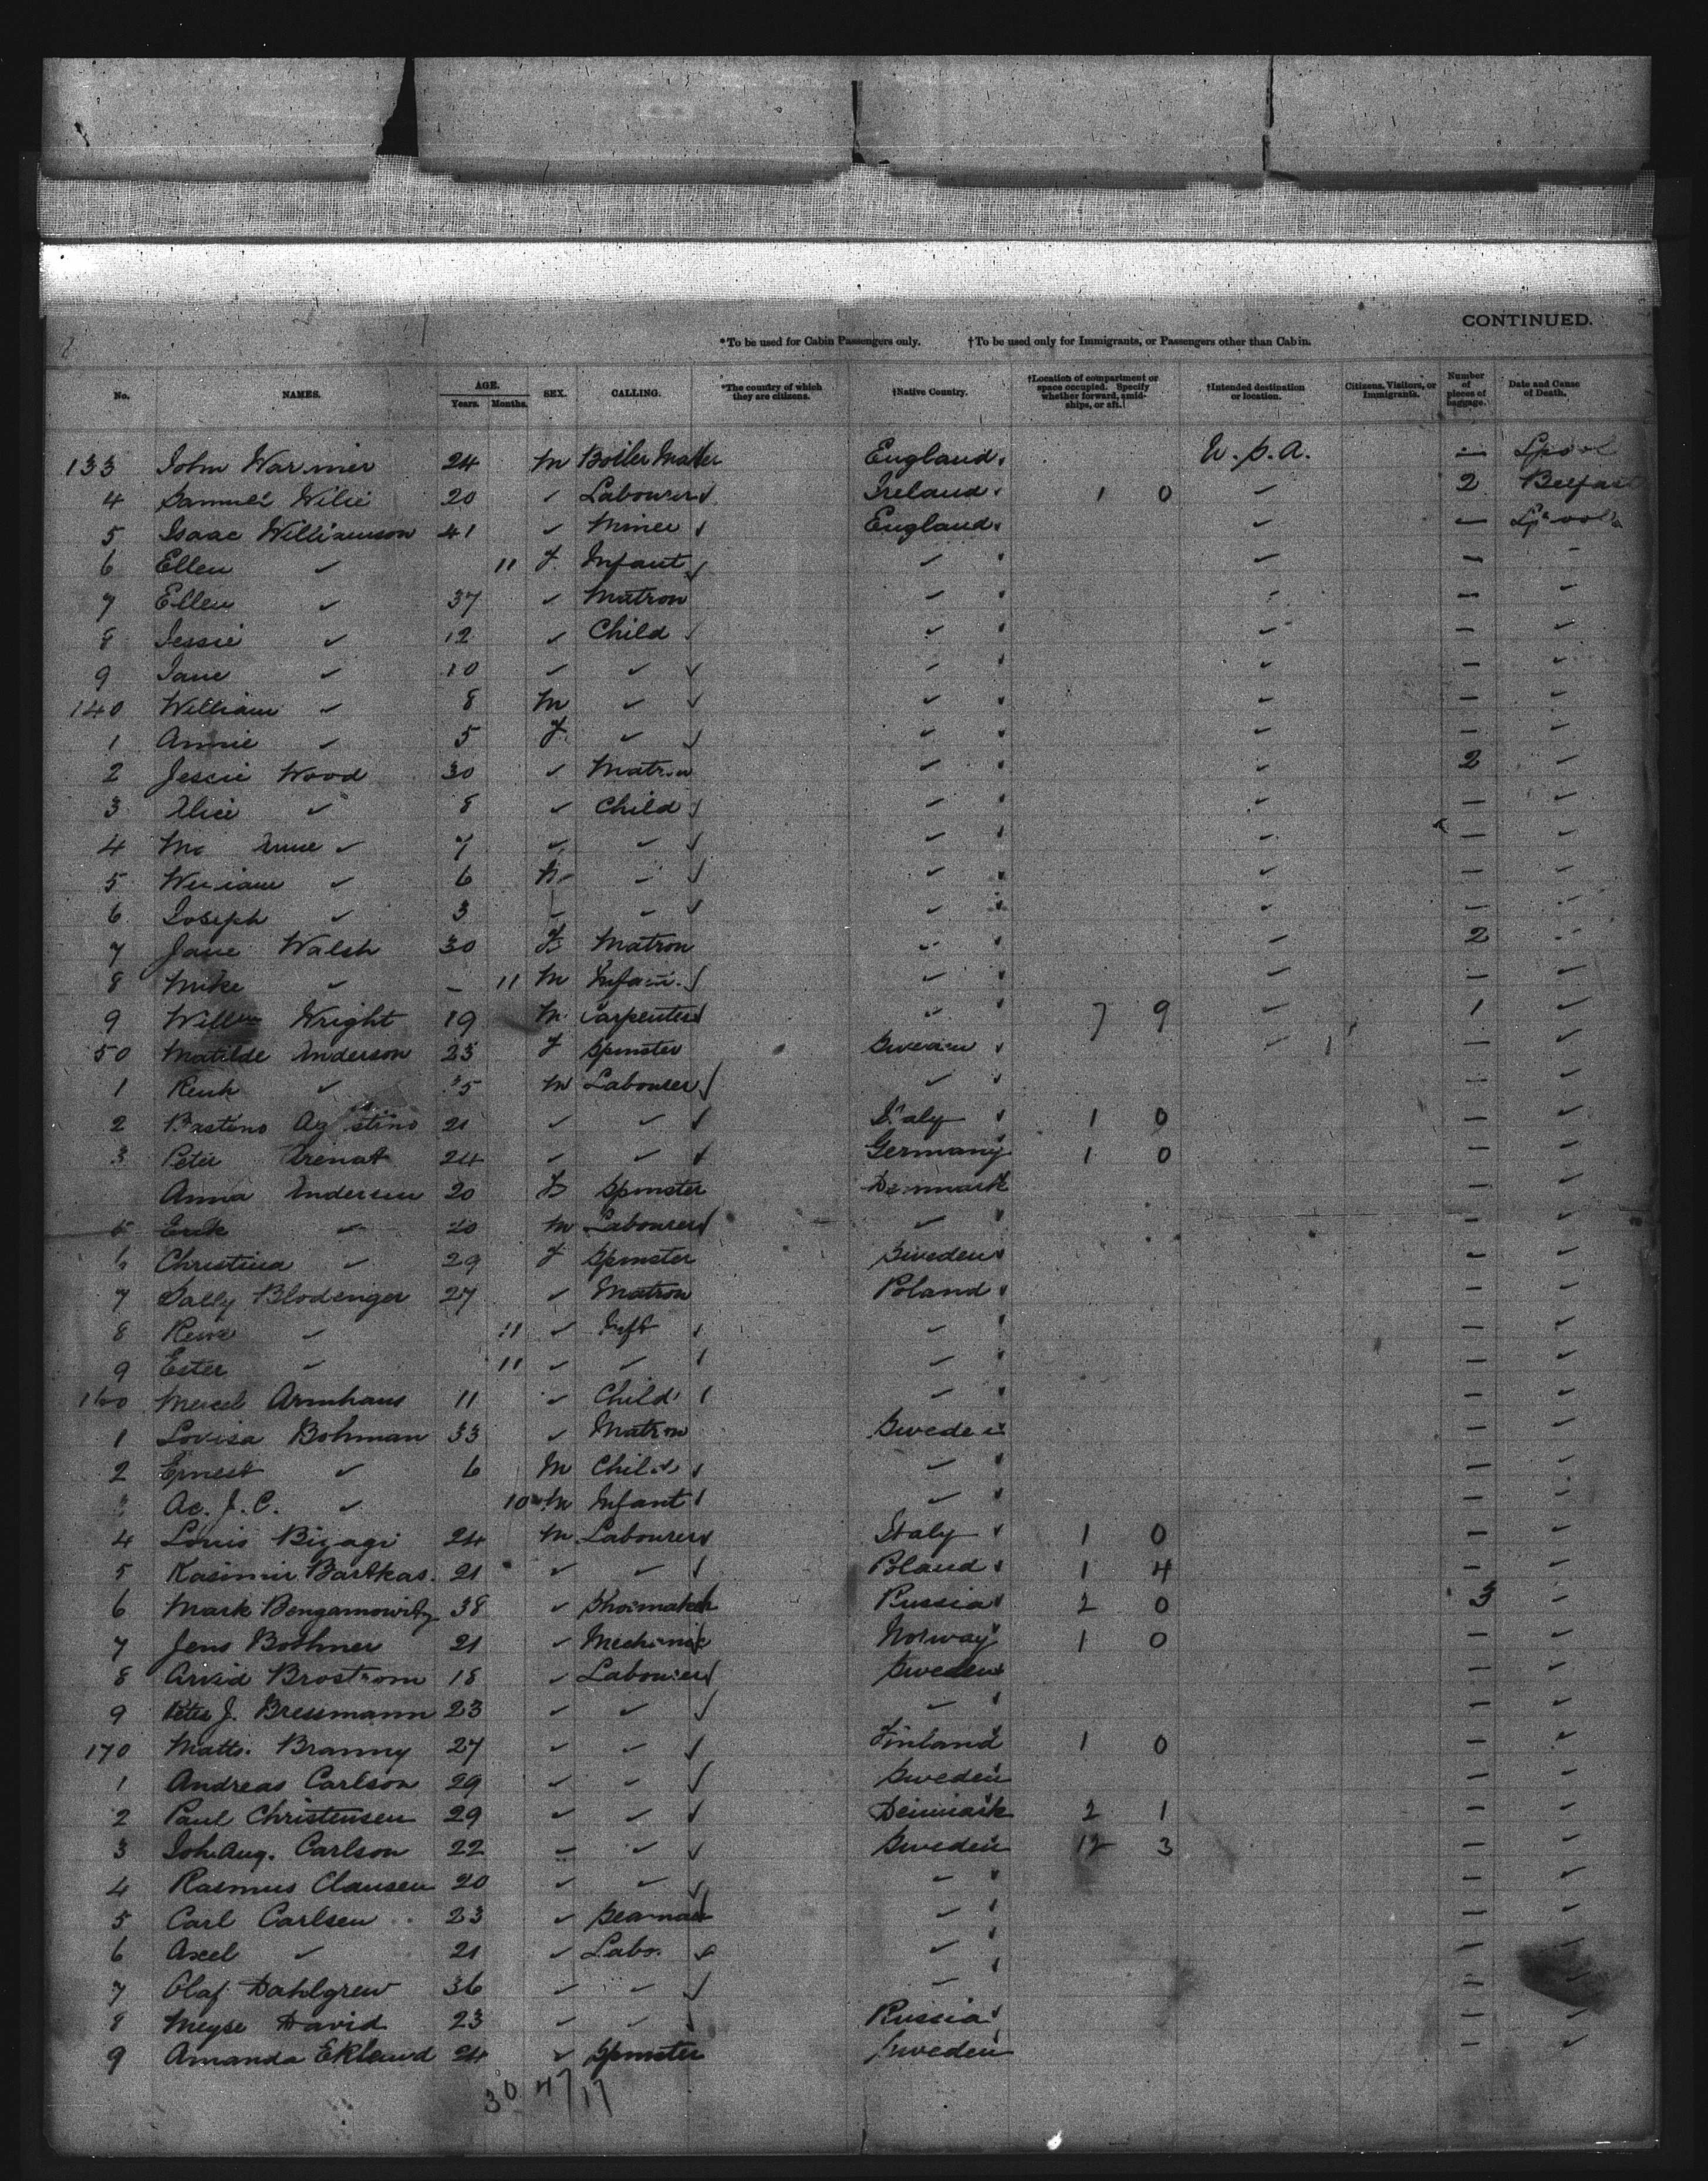 CONTINUED.
*To be used for Cabin Passengers only. †To be used only for Immigrants, or Passengers other than Cabin.
No. NAMES. AGE. Years. Months. SEX. CALLING. *The country of which they are citizens. †Native Country. †Location of compartment or space occupied. Specify whether forward, amidships, or aft. †Intended destination or location. Citizens, Visitors, or Immigrants. Number of pieces of baggage. Date and Cause of Death.
133 John Warmer 24 M Boiler Maker England U.S.A. — Lpool
4 Samuel Wilie 20 ✓ Labourer Ireland 1 0 ✓ 2 Belfast
5 Isaac Williamson 41 ✓ Miner England ✓ — Lpool
6 Ellen ✓ 11 F. Infant ✓ ✓ — -
7 Ellen ✓ 37 ✓ Matron ✓ — ✓
8 Jessie ✓ 12 ✓ Child ✓ ✓ — ✓
9 Jane ✓ 10 ✓ ✓ ✓ ✓ — ✓
140 William ✓ 8 M ✓ ✓ ✓ — ✓
1 Annie ✓ 5 F. ✓ ✓ ✓ — ✓
2 Jessie Wood 30 ✓ Matron ✓ ✓ 2 ✓
3 Alice ✓ 8 ✓ Child ✓ ✓ — ✓
4 Anne ✓ 7 ✓ ✓ ✓ ✓ — ✓
5 William ✓ 6 M ✓ ✓ ✓ — ✓
6 Joseph ✓ 3 ✓ ✓ ✓ ✓ — ✓
7 Jane Walsh 30 F Matron ✓ ✓ 2 ✓
8 Mike ✓ — 11 M Infant ✓ ✓ — ✓
9 Willm Wright 19 M. Carpenter ✓ 7 9 ✓ 1 ✓
50 Matilde Anderson 23 F Spinster Sweden ✓ — ✓
1 ✓ M Labourer ✓ — ✓
2 21 ✓ ✓ Italy 1 0 — ✓
3 Peter Arenat 24 ✓ ✓ Germany 1 0 — ✓
Anna Andersen 20 F Spinster Denmark — ✓
5 Erik ✓ 20 M Labourer ✓ — ✓
6 Christina ✓ 29 F Spinster Sweden — ✓
7 Sally Blodenger 27 ✓ Matron Poland — ✓
8 ✓ 11 ✓ Inft ✓ — ✓
9 Ester ✓ 11 ✓ ✓ ✓ — ✓
160 Mercel Armhaus 11 ✓ Child ✓ — ✓
1 Lovisa Bohman 33 ✓ Matron Sweden — ✓
2 Ernest ✓ 6 M Child ✓ — ✓
Ac. J. C. ✓ 10 M Infant ✓ — ✓
4 Louis Bigagi 24 M Labourer Italy 1 0 — ✓
5 Kasimir Bartkas. 21 ✓ ✓ Poland 1 4 — ✓
6 Mark 38 ✓ Shoemaker Russia 2 0 3 ✓
7 Jens Bothner 21 ✓ Mechanic Norway 1 0 — ✓
8 Arvid Brostrom 18 ✓ Labourer Sweden — ✓
9 Peter J. Bressmann 23 ✓ ✓ ✓ — ✓
170 Matts. Branny 27 ✓ ✓ Finland 1 0 — ✓
1 Andreas Carlson 29 ✓ ✓ Sweden — ✓
2 Paul Christensen 29 ✓ ✓ Denmark 2 1 — ✓
3 Joh. Aug. Carlson 22 ✓ ✓ Sweden 12 3 — ✓
4 Rasmus Clausen 20 ✓ ✓ ✓ — ✓
5 Carl Carlsen 23 ✓ Seaman ✓ — ✓
6 Axel ✓ 21 ✓ Labr. ✓ — ✓
7 Olaf Dahlgrew 36 ✓ ✓ ✓ — ✓
8 Meyse David 23 ✓ ✓ Russia — ✓
9 Amanda Eklund 24 ✓ Spinster Sweden — ✓
30 47/17